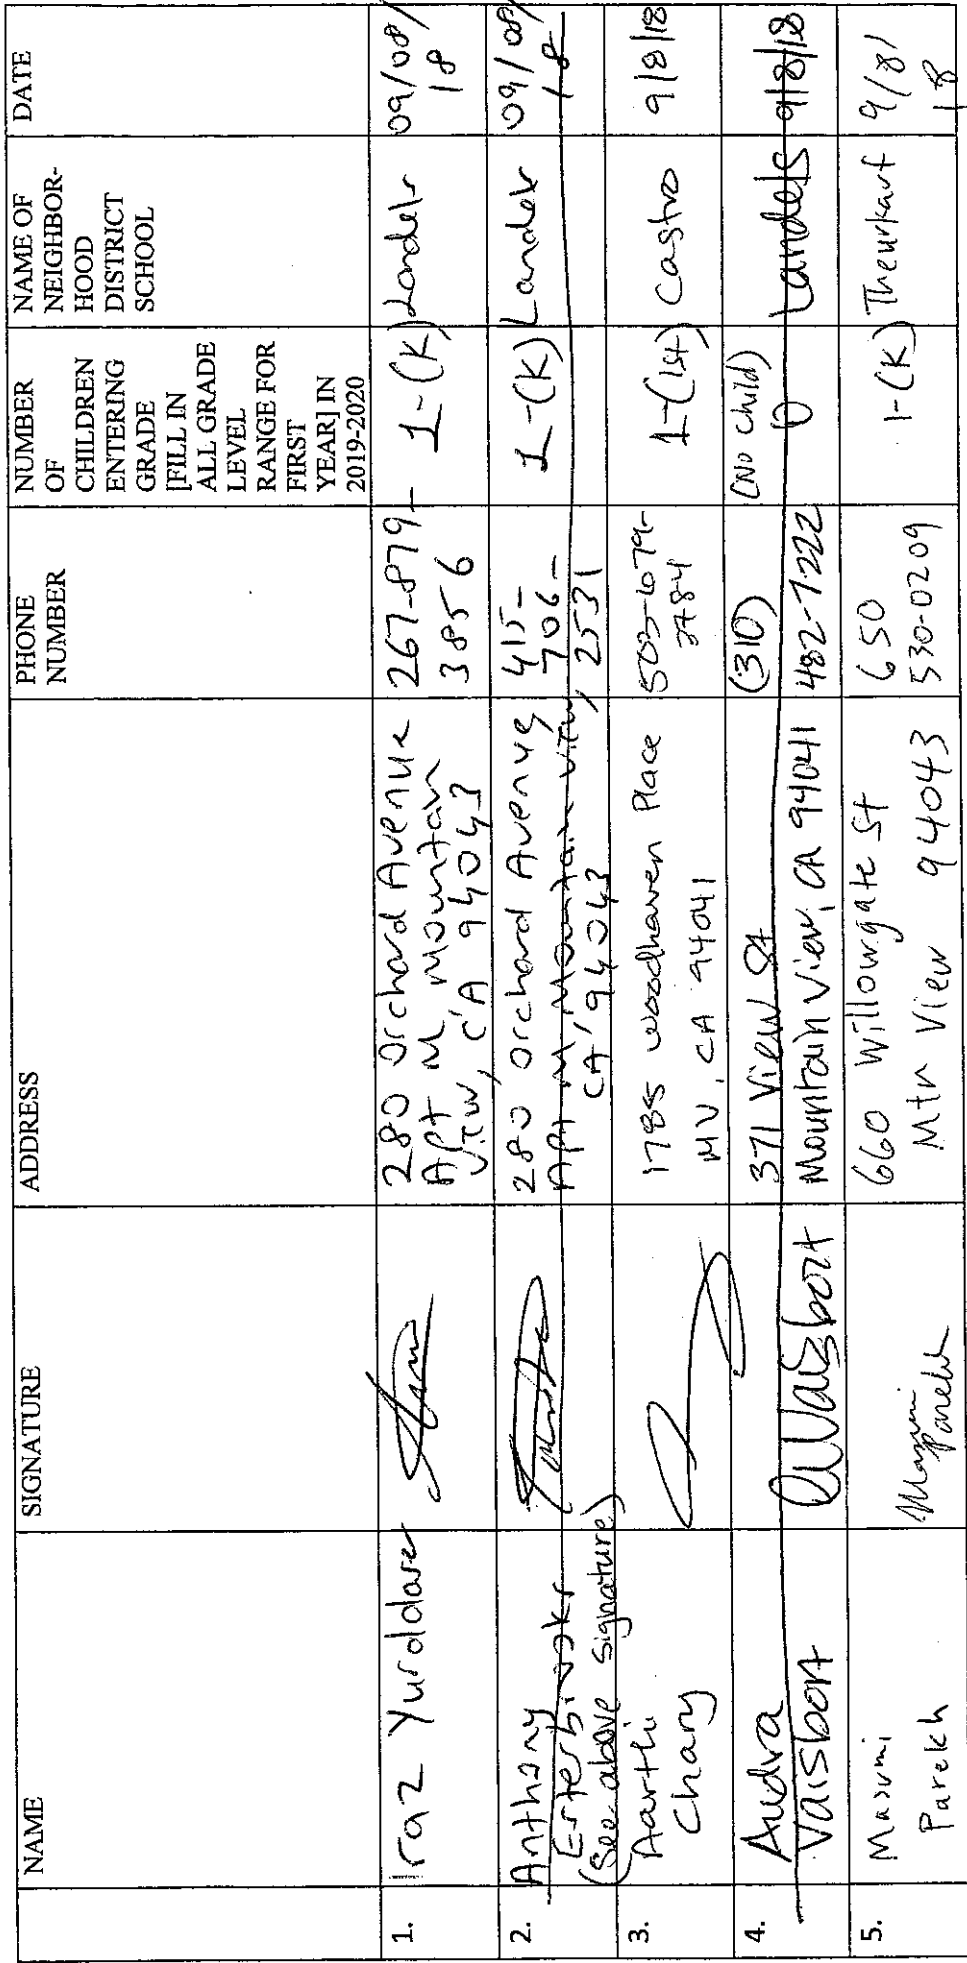 NAME
SIGNATURE
ADDRESS
PHONE
NUMBER
NUMBER
OF
CHILDREN
ENTERING
GRADE
[FILL IN
ALL GRADE
LEVEL
RANGE FOR
FIRST
YEAR] IN
2019-2020
NAME OF
NEIGHBOR-
HOOD
DISTRICT
SCHOOL
DATE
1.
Iraz
280 Orchard Avenue
Apt M Mountain
View, CA 94043
267-879-
3856
1-(K)
Landels
09/08/
18
2.
Anthony
(See above signature)
280 Orchard Avenue
Apt M Mountain View,
CA 94043
415-
706-
2531
1-(K)
Landels
09/08/
18
3.
Aarthi
Chary
1785 Woodhaven Place
MV, CA 94041
503-679-
1-(1st)
Castro
9/8/18
4.
Audra
Vaisbort
371 View St
Mountain View, CA 94041
(310)
482-7222
(No child)
0
Landels
9/8/18
5.
Masumi
Parekh
Masumi
Parekh
660 Willowgate St
Mtn View 94043
650
530-0209
1-(K)
Theurkauf
9/8/
18